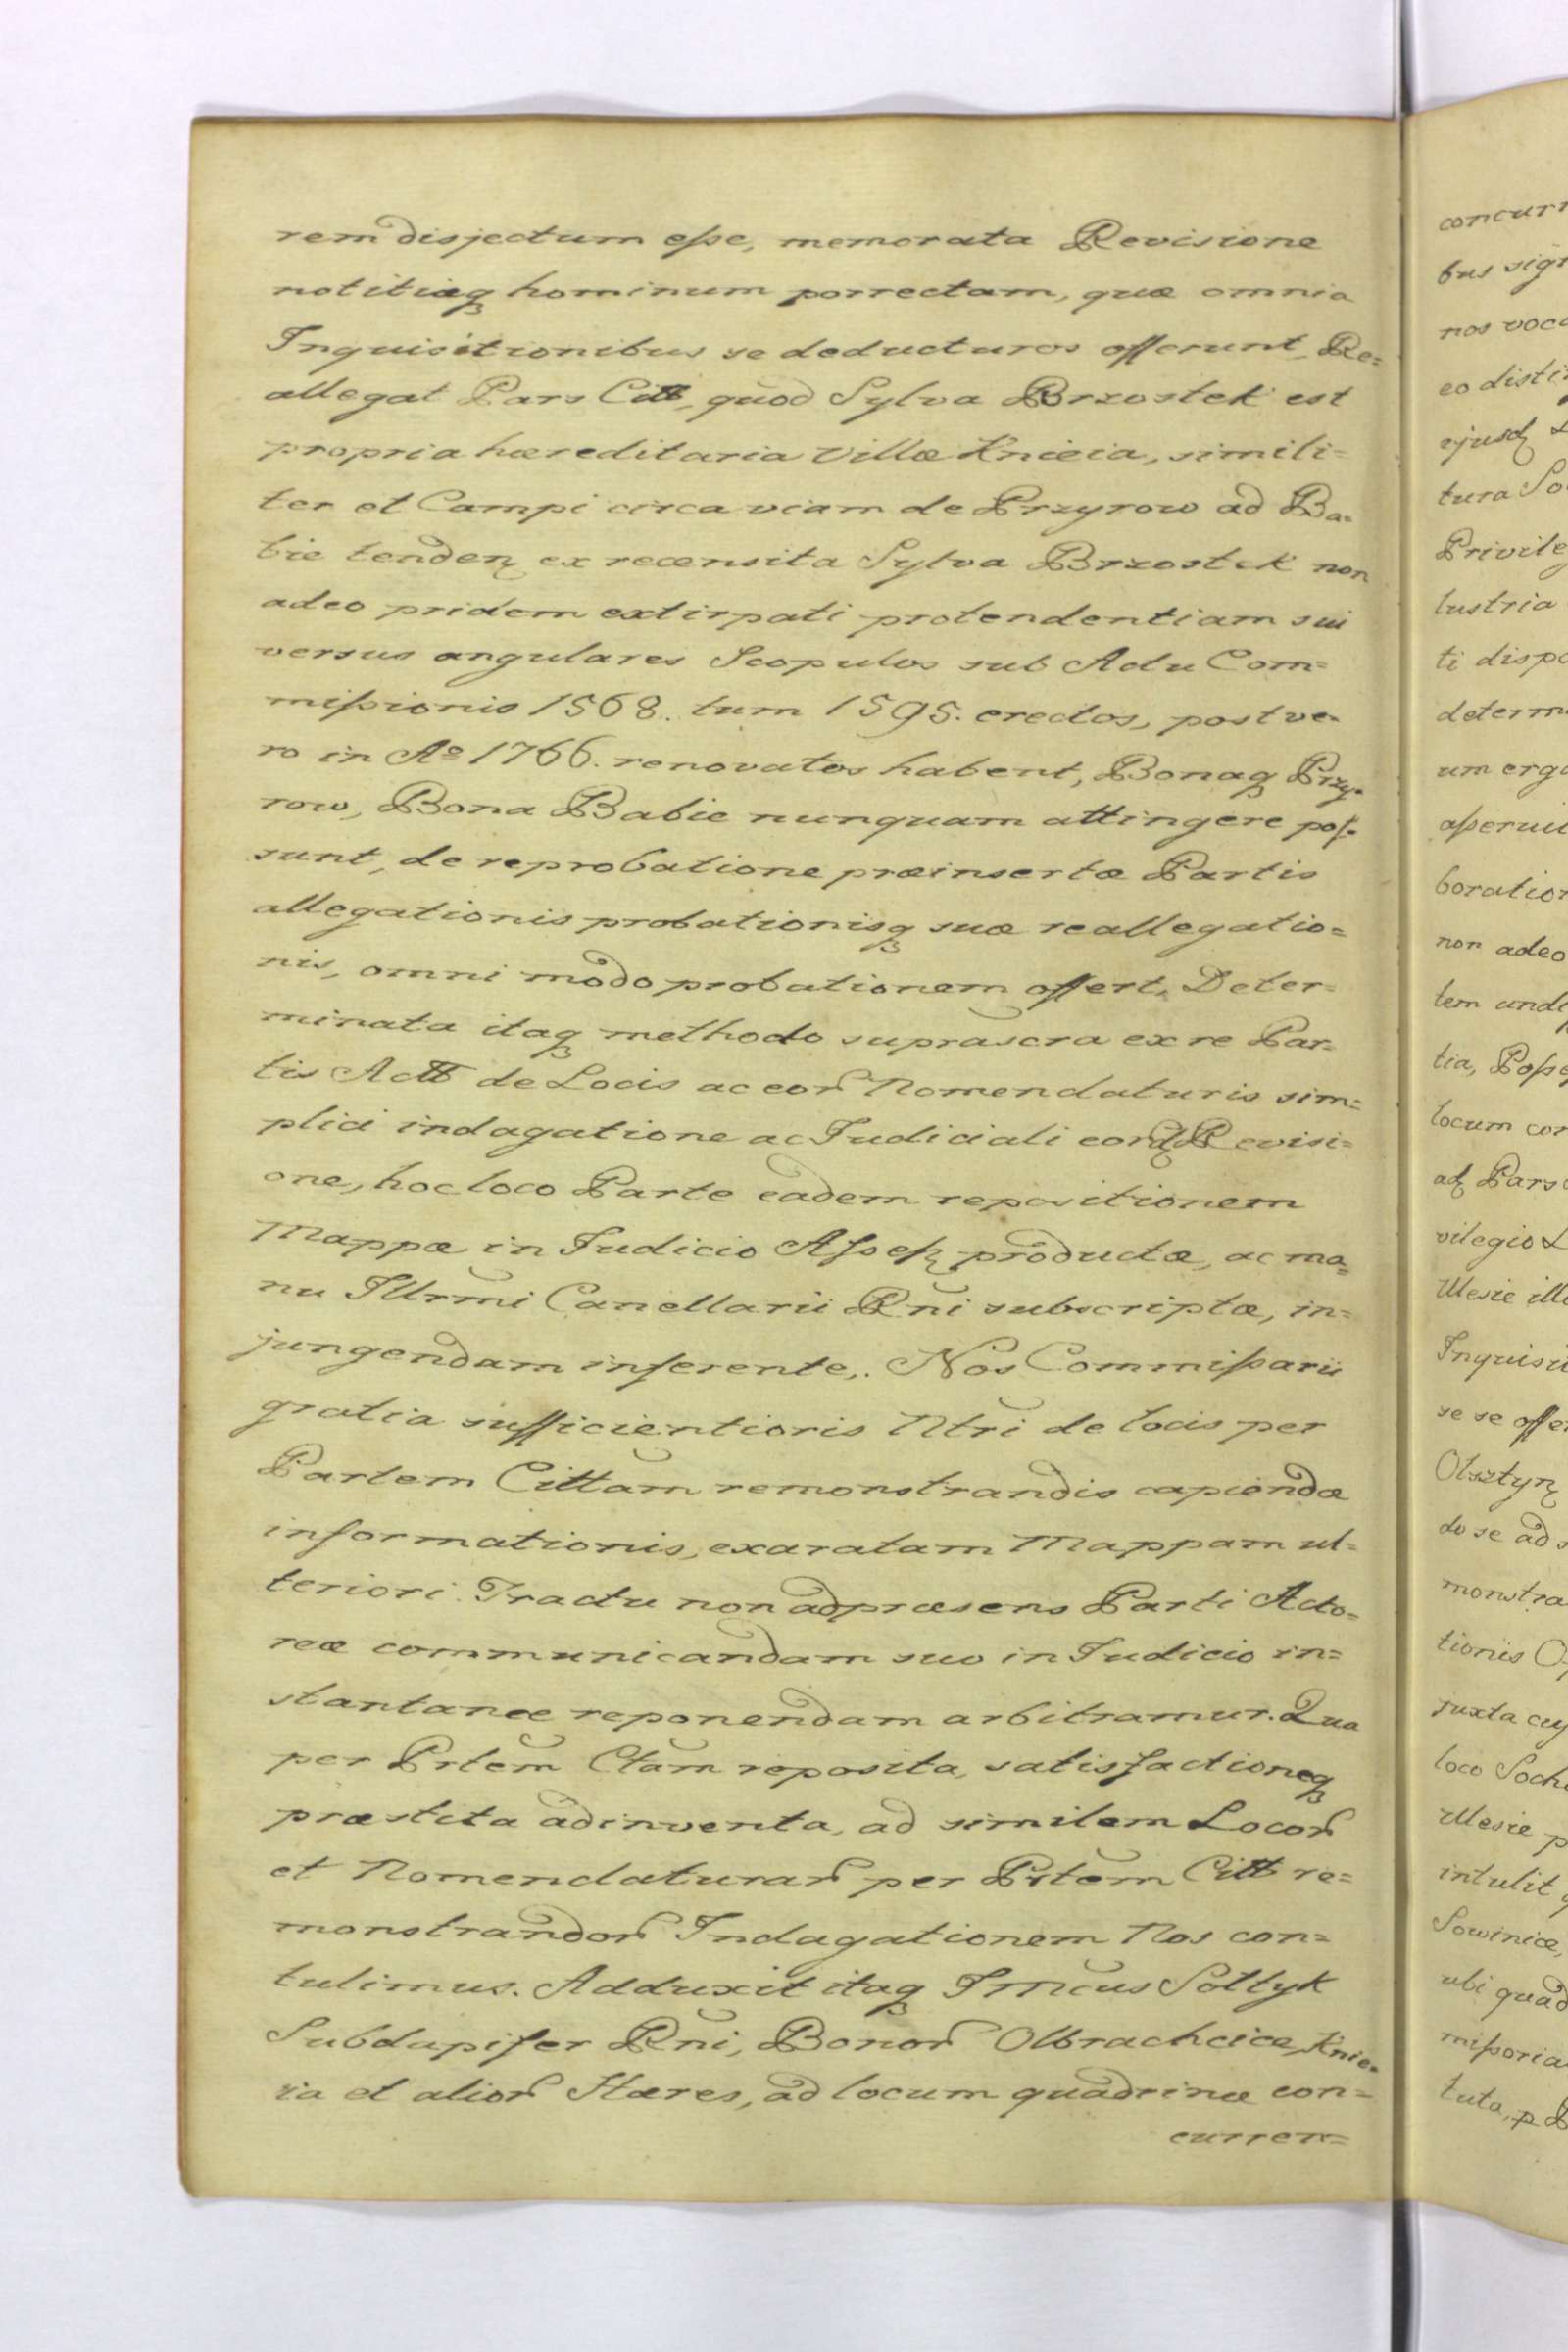 rem disjectum eſse, memorata Revisione
notitiaq hominum porrectam, quæ omnia
Inquisitionibus se deducturos offerunt, Re=
allegat Pars Citt, quod Sylva Brzostek est
propria hæreditaria Villæ Knieia, simili=
ter et Campi circa viam de Przyrow ad Ba=
bie tenden ex recensita Sylva Brzostek non
adeo pridem extirpati protendentiam sui
versus angulares Scopulos sub Actu Com=
miſsionis 1568. tum 1595. erectos, post ve=
ro in Aº 1766. renovatos habent, Bonaq Przy=
row, Bona Babie nunquam attingere poſ=
sunt, de reprobatione præinsertæ Partis
allegationis probationisq suæ reallegatio=
nis, omni modo probationem offert. Deter=
minata itaq methodo suprascra ex re Par=
tis Actt de Locis ac eor Nomenclaturis sim=
plici indagatione ac Judiciali eord Revisi=
one, hoc loco Parte eadem repositionem
Mappæ in Judicio Aſseſs productæ, ac ma=
nu Illrmi Cancellarii Rni subscriptæ, in=
jungendam inferente,. Nos Commiſsarii
gratia sufficientioris Ntri de locis per
Partem Cittam remonstrandis capiendæ
informationis, exaratam Mappam ul=
teriori Tractu non adpræsens Parti Acto=
reæ communicandam suo in Judicio in=
stantanee reponendam arbitramur. Qua
per Prtem Ctam reposita, satisfactioneq
præstita adinventa, ad similem Locor
et Nomenclaturar per Prtem Citt re=
monstrandor Indagationem Nos con=
tulimus. Adduxit itaq Jmcus Soltyk
Subdapifer Rni, Bonor Olbrachcice, Knie=
ia et alior Hæres, ad locum quadrinæ con=
curren=
concurr
bus sig
nos voc
eo disti
ejusd
tura So
Privile
lustria
ti dispo
determ
um erg
aſserui
boratio
non adeo
tem und
tia, Poſs
locum con
ad Pars
vilegio
Ulesie ill
Inquisi
se se offe
Olsztyn
do se ad
monstra
tionis O
juxta cuj
loco Soch
Ulesie p
intulit
Sowinice,
ubi quad
miſsoria
tuta, p